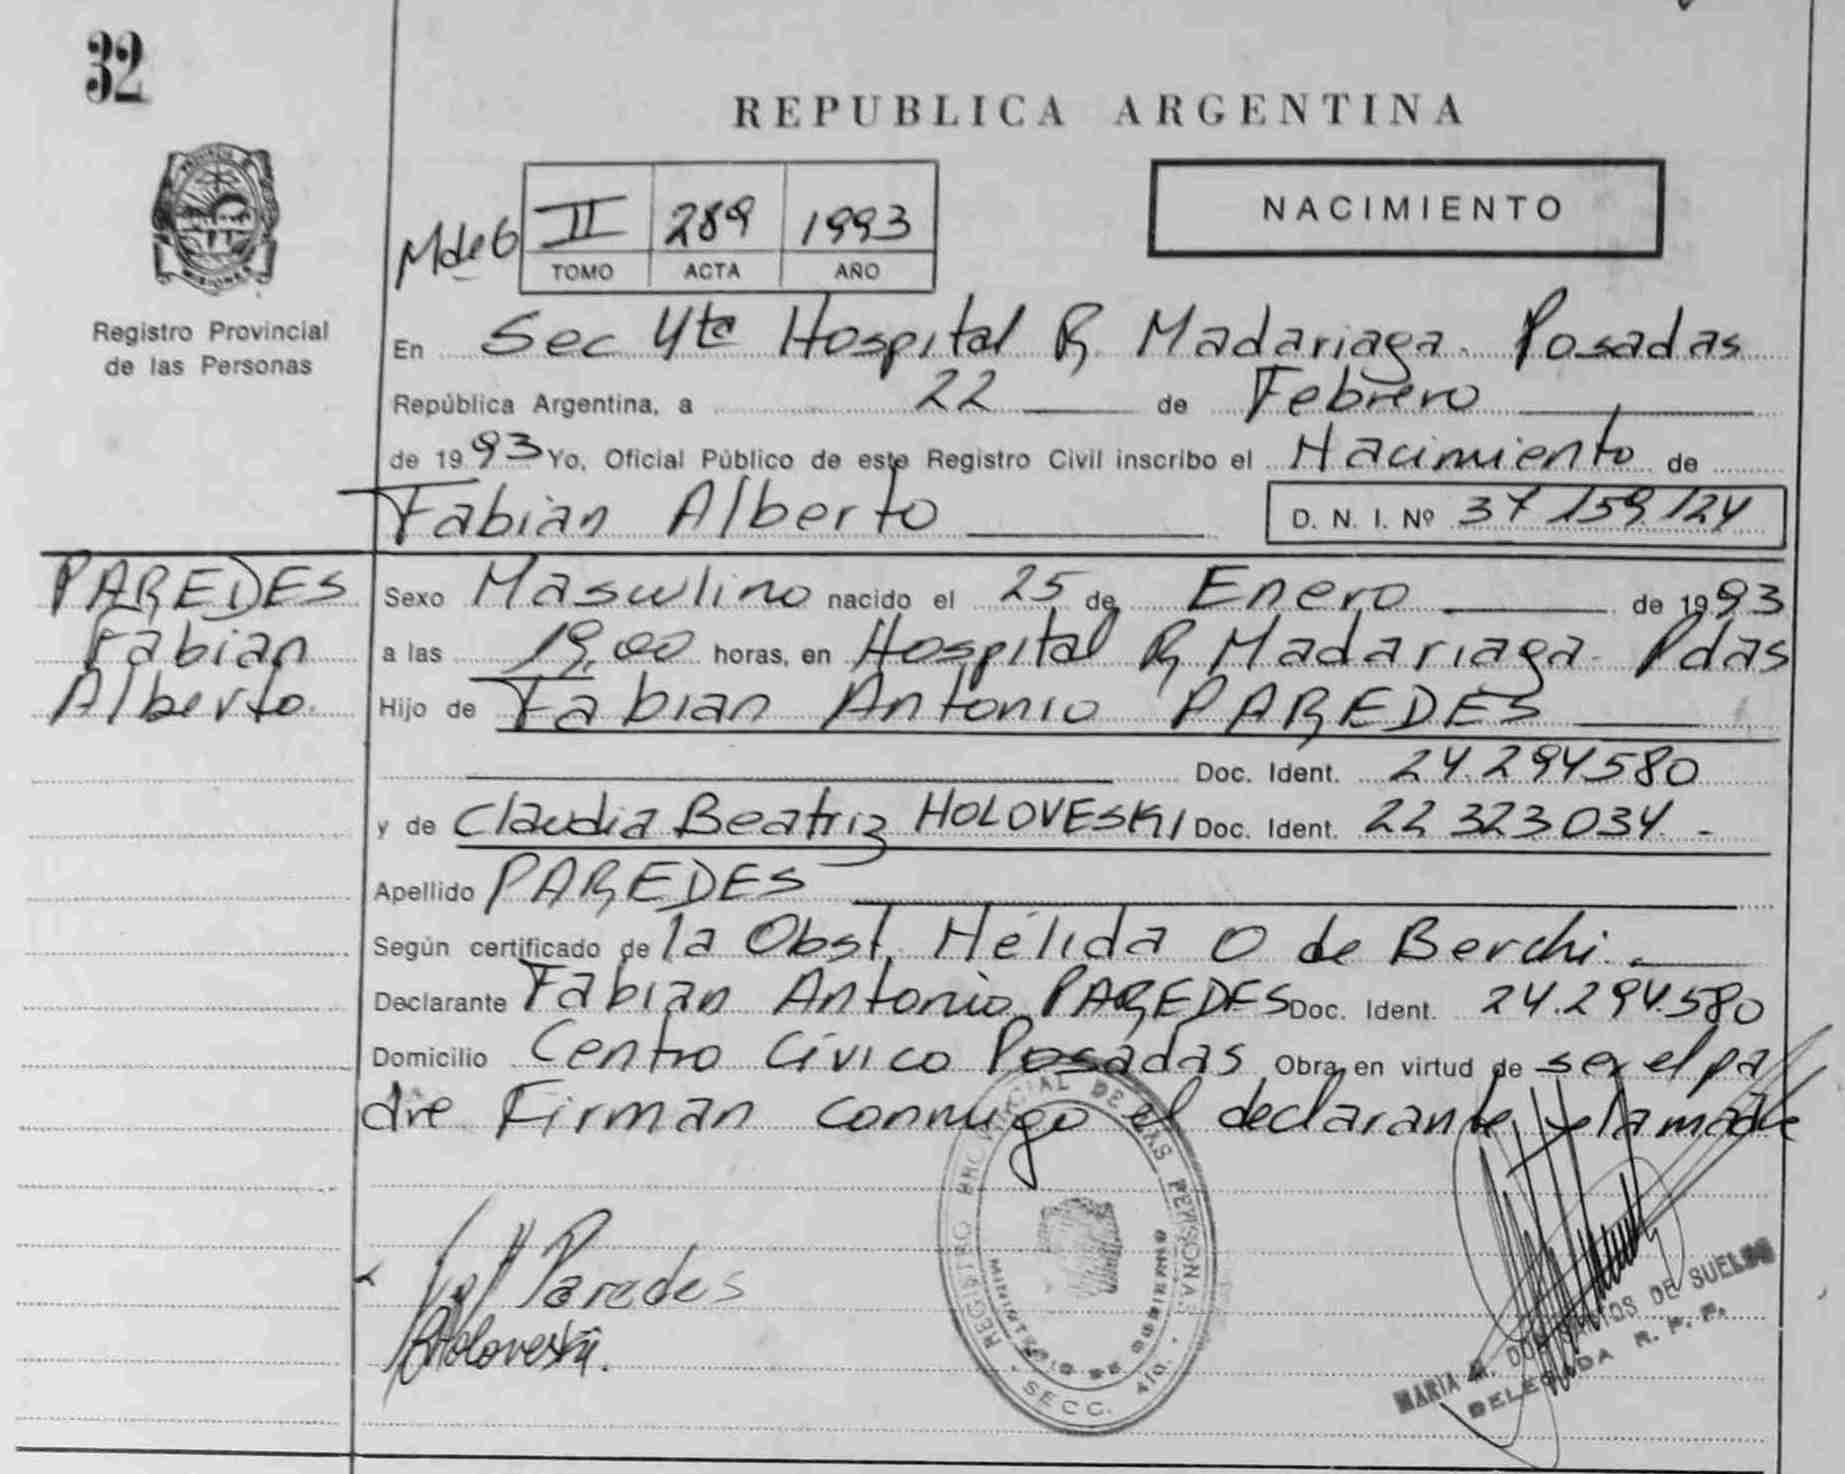 32
REPUBLICA ARGENTINA
NACIMIENTO
M de G II 289 1993
TOMO ACTA AÑO
PROVINCIA DE
MISIONES
Registro Provincial
de las Personas
En Sec 4ta Hospital R. Madariaga. Posadas
República Argentina, a 22 de Febrero
de 1993 Yo, Oficial Público de este Registro Civil inscribo el Nacimiento de
Fabian Alberto D. N. I. Nº 37 159 124
PAREDES
Fabian
Alberto.
Sexo Masculino nacido el 25 de Enero de 1993
a las 19,00 horas, en Hospital R Madariaga. Pdas
Hijo de Fabian Antonio PAREDES
Doc. Ident. 24.294580
y de Claudia Beatriz HOLOVESKI Doc. Ident. 22 323.034. -
Apellido PAREDES
Según certificado de la Obst. Nélida O de Berchi. -
Declarante Fabian Antonio PAREDES Doc. Ident. 24.294.580
Domicilio Centro Cívico Posadas Obra en virtud de ser el pa
dre Firman conmigo el declarante y la madre
Paredes
Holoveski.
REGISTRO PROVINCIAL DE LAS PERSONAS
MINISTERIO DE GOBIERNO
SECC. 4ta.
MARIA M. DOS SANTOS DE SUELDO
DELEGADA R. P. P.